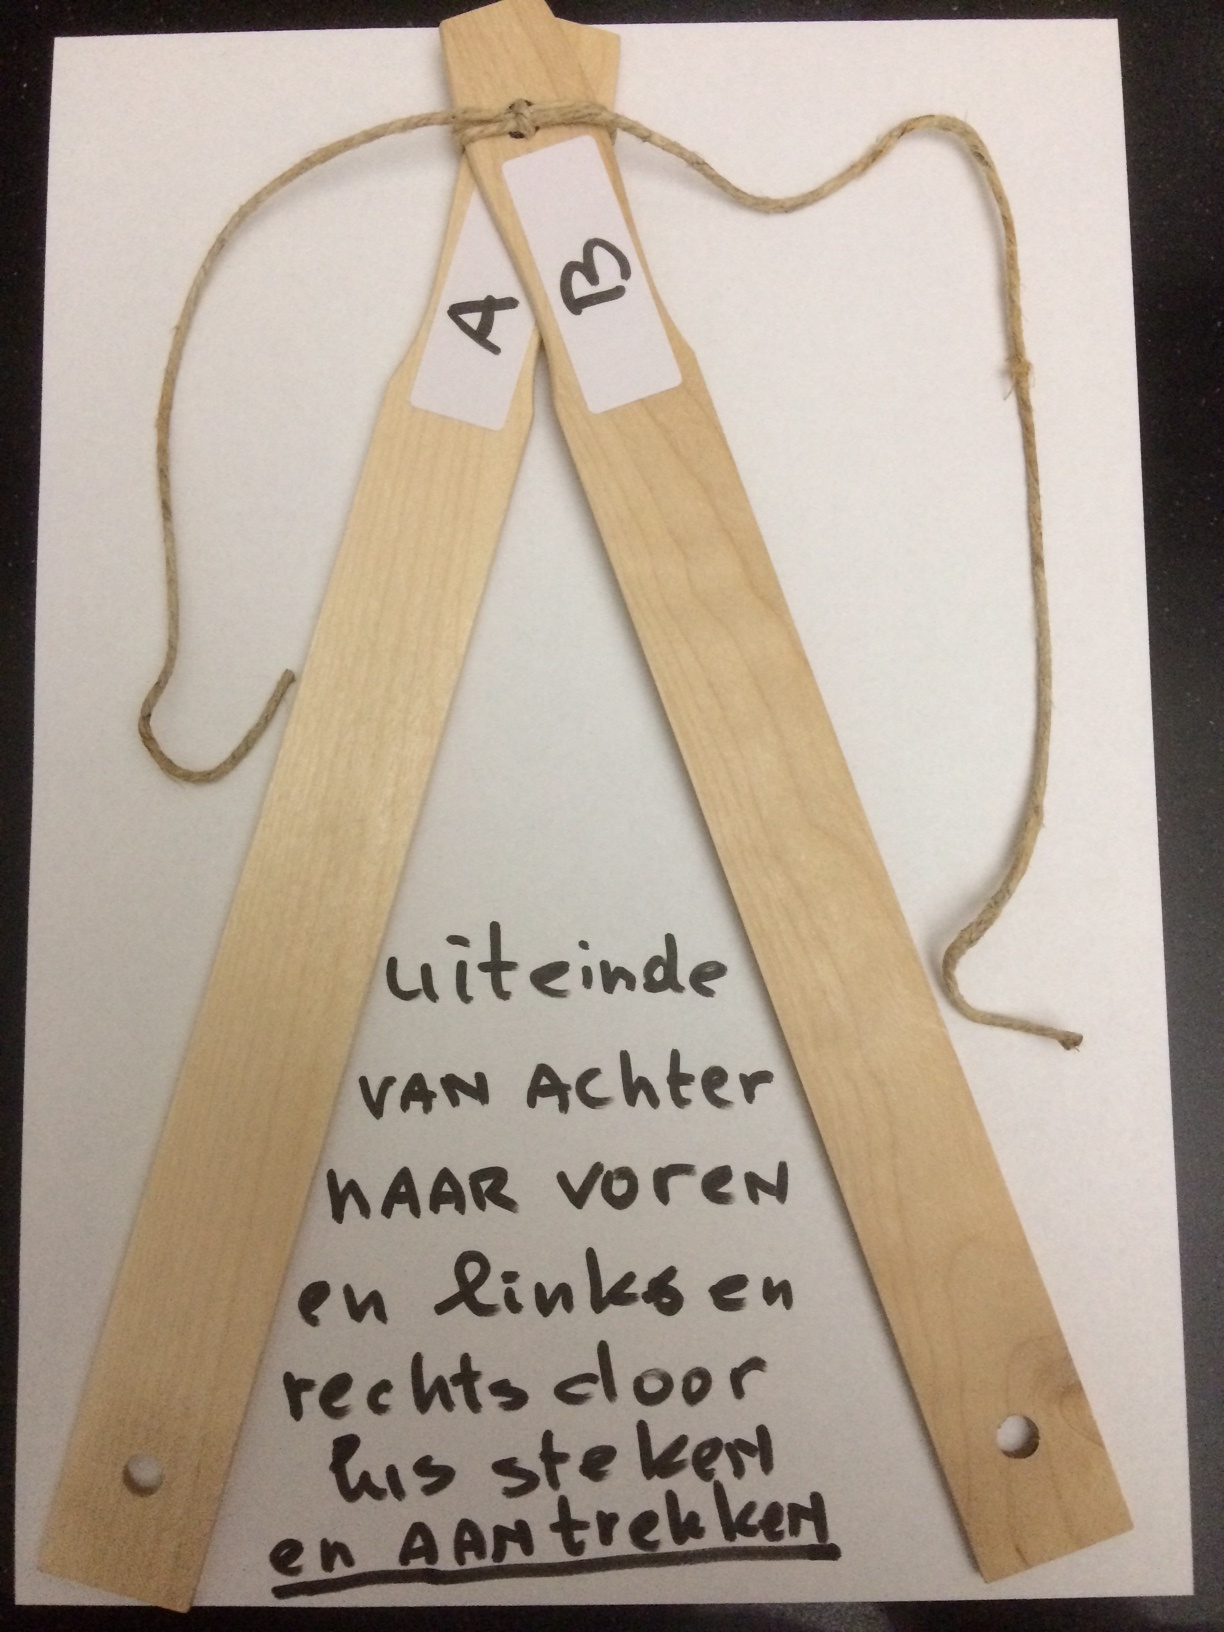 A
B
uiteinde
VAN Achter
NAAR VOREN
en links en
rechts door
lus steken
en AANtrekken